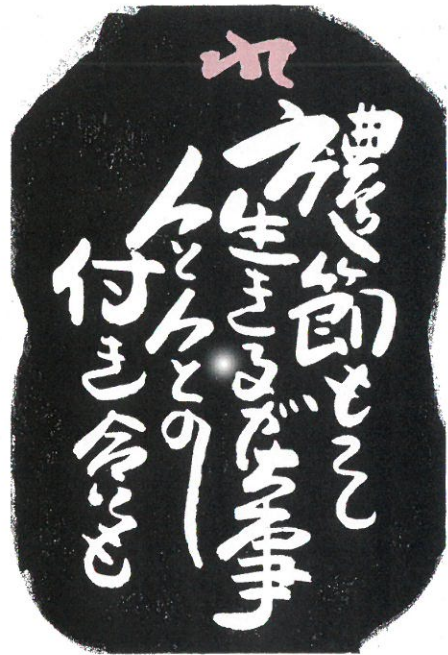 れ
禮節もって
生きるが大事
人と人との
付き合いにも